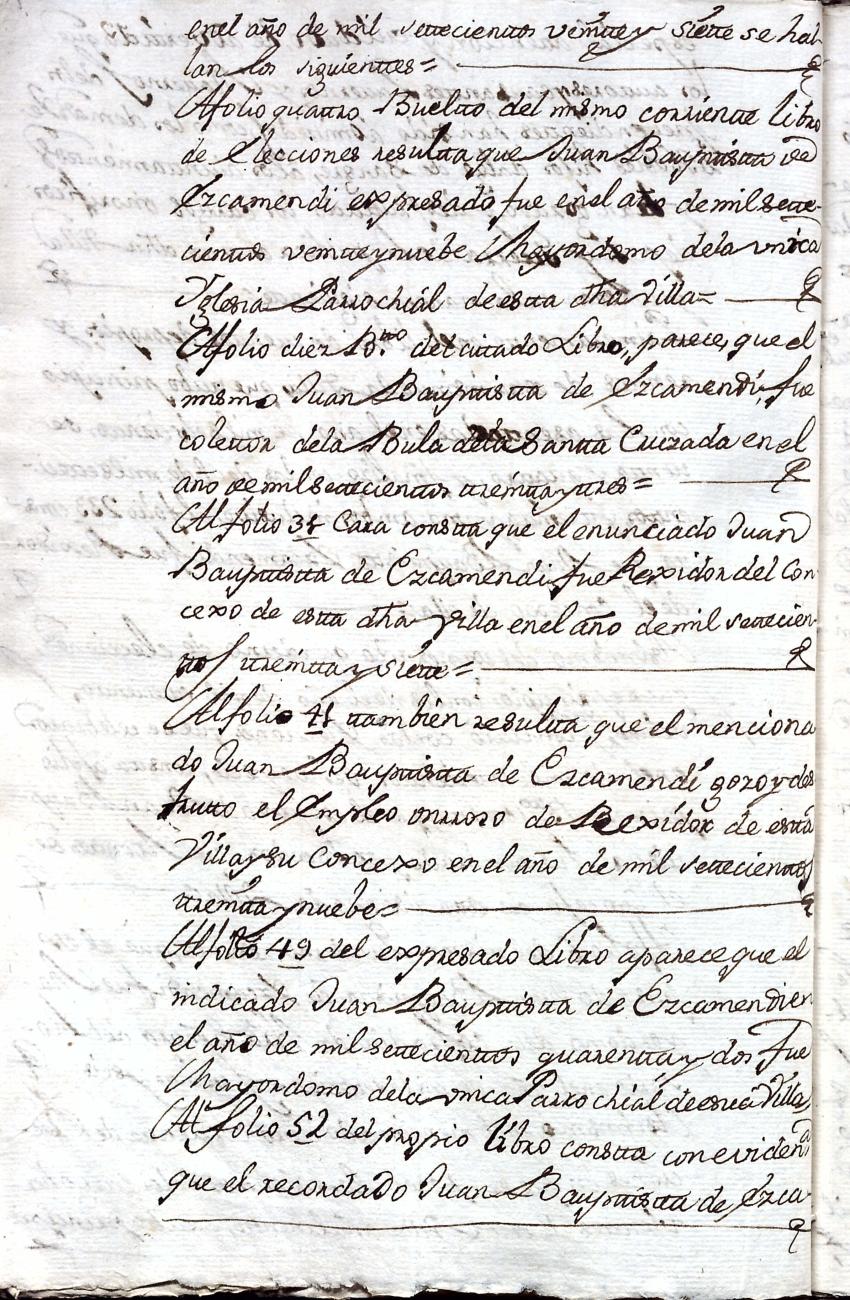 en el año de mil settecienttos veintte y siette se hal-
lan los siguienttes=
Al folio quattro Bueltto del mismo corrientte libro
de Elecciones resultta que Juan Bauptistta de
Ezcamendi expresado fue en el año de mil sette-
cienttos veintte y nuebe Mayordomo de la vnica
Yglesia Parrochial de estta dha Villa=
Al folio diez B.tto del cittado Libro, parece, que el
mismo Juan Bauptistta de Ezcamendi, fue
colettor de la Bula de la Santta Cruzada en el
año de mil settecienttos ttreintta y ttres=
Al folio 38 Cara constta que el enunciado Juan
Bauptistta de Ezcamendi fue Rexidor del Con-
cexo de estta dha Villa en el año de mil settecien-
ttos ttreintta y siette=
Al folio 41 ttambien resultta que el menciona
do Juan Bauptistta de Ezcamendi gozo y des
frutto el Empleo onrroso de Rexidor de estta
Villa y su Concexo en el año de mil settecienttos
ttreintta y nuebe=
Al folio 49 del expresado Libro aparece que el
indicado Juan Bauptistta de Ezcamendi en
el año de mil settecienttos quarentta y dos fue
Mayordomo de la vnica Parrochial de estta Villa
Al folio 52 del propio libro constta con eviden.a
que el recordado Juan Bauptistta de Ezca-